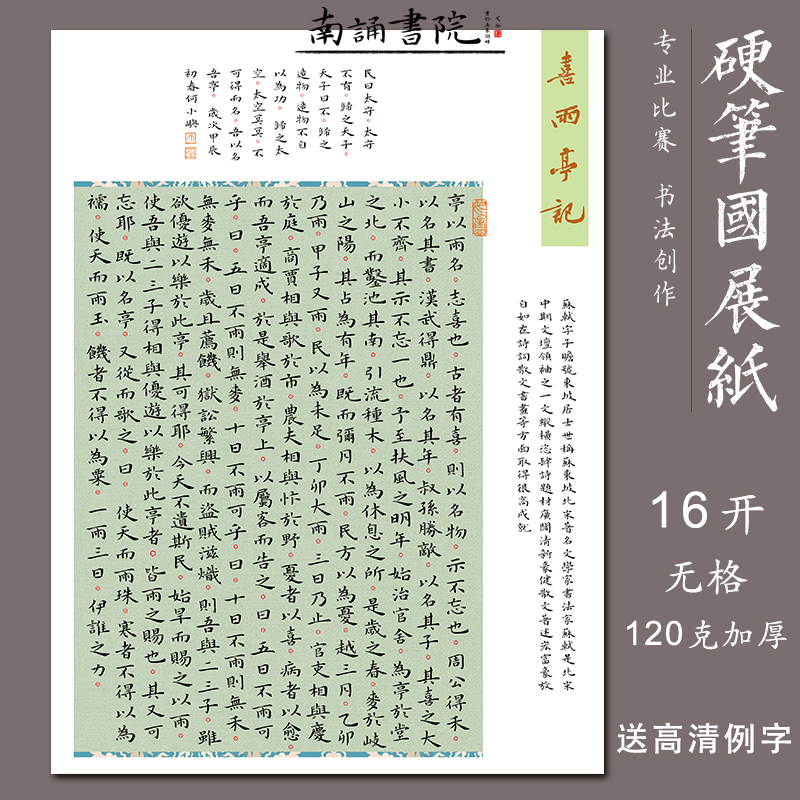 南誦書院
硬筆國展紙
专业比赛 书法创作
16开
无格
120克加厚
送高清例字
喜雨亭記
蘇軾字子瞻號東坡居士世稱蘇東坡北宋著名文學家書法家蘇軾是北宋
中期文壇領袖之一文縱橫恣肆詩題材廣闊清新豪健散文著述宏富豪放
自如在詩詞散文書畫等方面取得很高成就
亭以雨名。志喜也。古者有喜。則以名物。示不忘也。周公得禾。
以名其書。漢武得鼎。以名其年。叔孫勝敵。以名其子。其喜之大
小不齊。其示不忘一也。予至扶風之明年。始治官舍。為亭於堂
之北。而鑿池其南。引流種木。以為休息之所。是歲之春。麥於岐
山之陽。其占為有年。既而彌月不雨。民方以為憂。越三月。乙卯
乃雨。甲子又雨。民以為未足。丁卯大雨。三日乃止。官吏相與慶
於庭。商賈相與歌於市。農夫相與忭於野。憂者以喜。病者以愈
而吾亭適成。於是舉酒於亭上。以屬客而告之。曰。五日不雨可
乎。曰。五日不雨則無麥。十日不雨可乎。曰。十日不雨則無禾
無麥無禾。歲且薦饑。獄訟繁興。而盜賊滋熾。則吾與二三子雖
欲優遊以樂於此亭。其可得耶。今天不遺斯民。始旱而賜之以雨。
使吾與二三子得相與優遊以樂於此亭者。皆雨之賜也。其又可
忘耶。既以名亭。又從而歌之。曰。使天而雨珠。寒者不得以為
襦。使天而雨玉。饑者不得以為粟。一雨三日。伊誰之力。
民曰太守。太守
不有。歸之天子。
天子曰不。歸之
造物。造物不自
以為功。歸之太
空。太空冥冥。不
可得而名。吾以名
吾亭。歲次甲辰
初春何小興